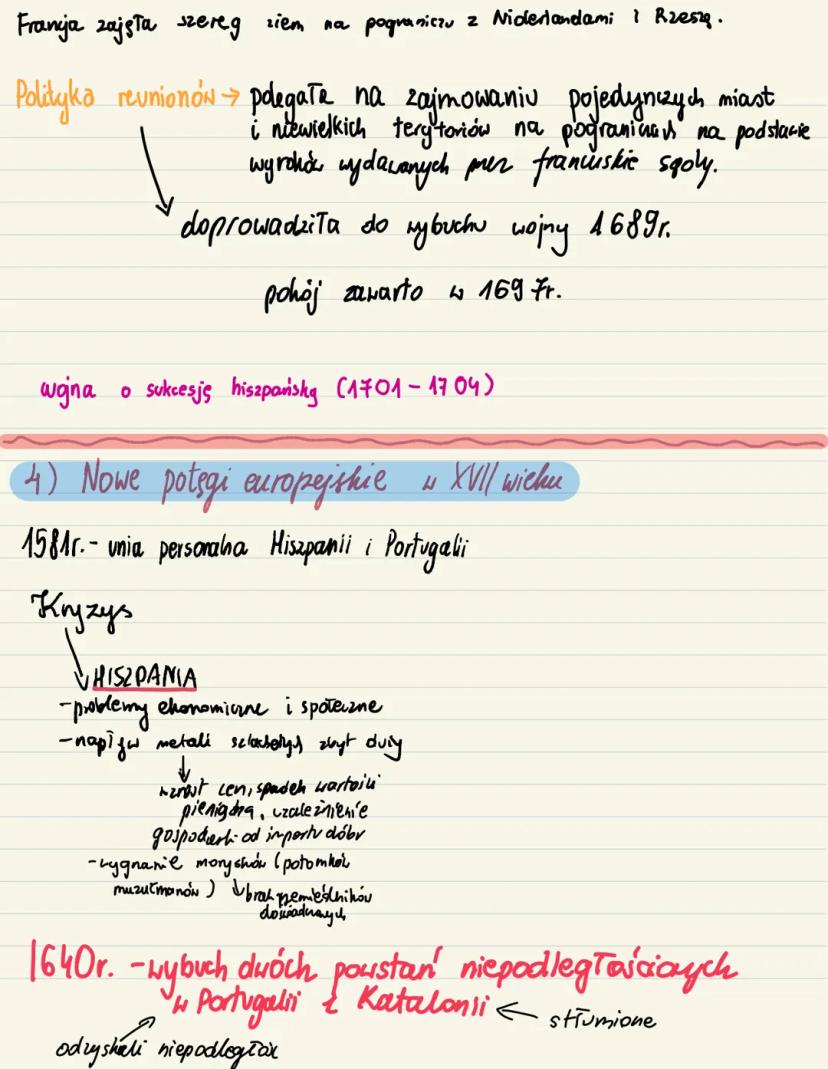 Francja zajęła szereg ziem na pograniczu z Niderlandami i Rzeszą.
Polityka reunionów → polegała na zajmowaniu pojedynczych miast
i niewielkich terytoriów na pograniczach na podstawie
wyroków wydawanych przez francuskie sądy.
doprowadziła do wybuchu wojny 1689r.
pokój zawarto w 1697r.
wojna o sukcesję hiszpańską (1701-1704)
4) Nowe potęgi europejskie w XVII wieku
1581r.- unia personalna Hiszpanii i Portugalii
Kryzys
HISZPANIA
-problemy ekonomiczne i społeczne
-napływ metali szlachetnych zbyt duży
wzrost cen, spadek wartości
pieniądza, uzależnienie
gospodarki od importu dóbr
-wygnanie morysków (potomków
muzułmanów) ↓ brak rzemieślników
doświadczonych
1640r. -wybuch dwóch powstań niepodległościowych
w Portugalii i Katalonii ← stłumione
odzyskali niepodległość